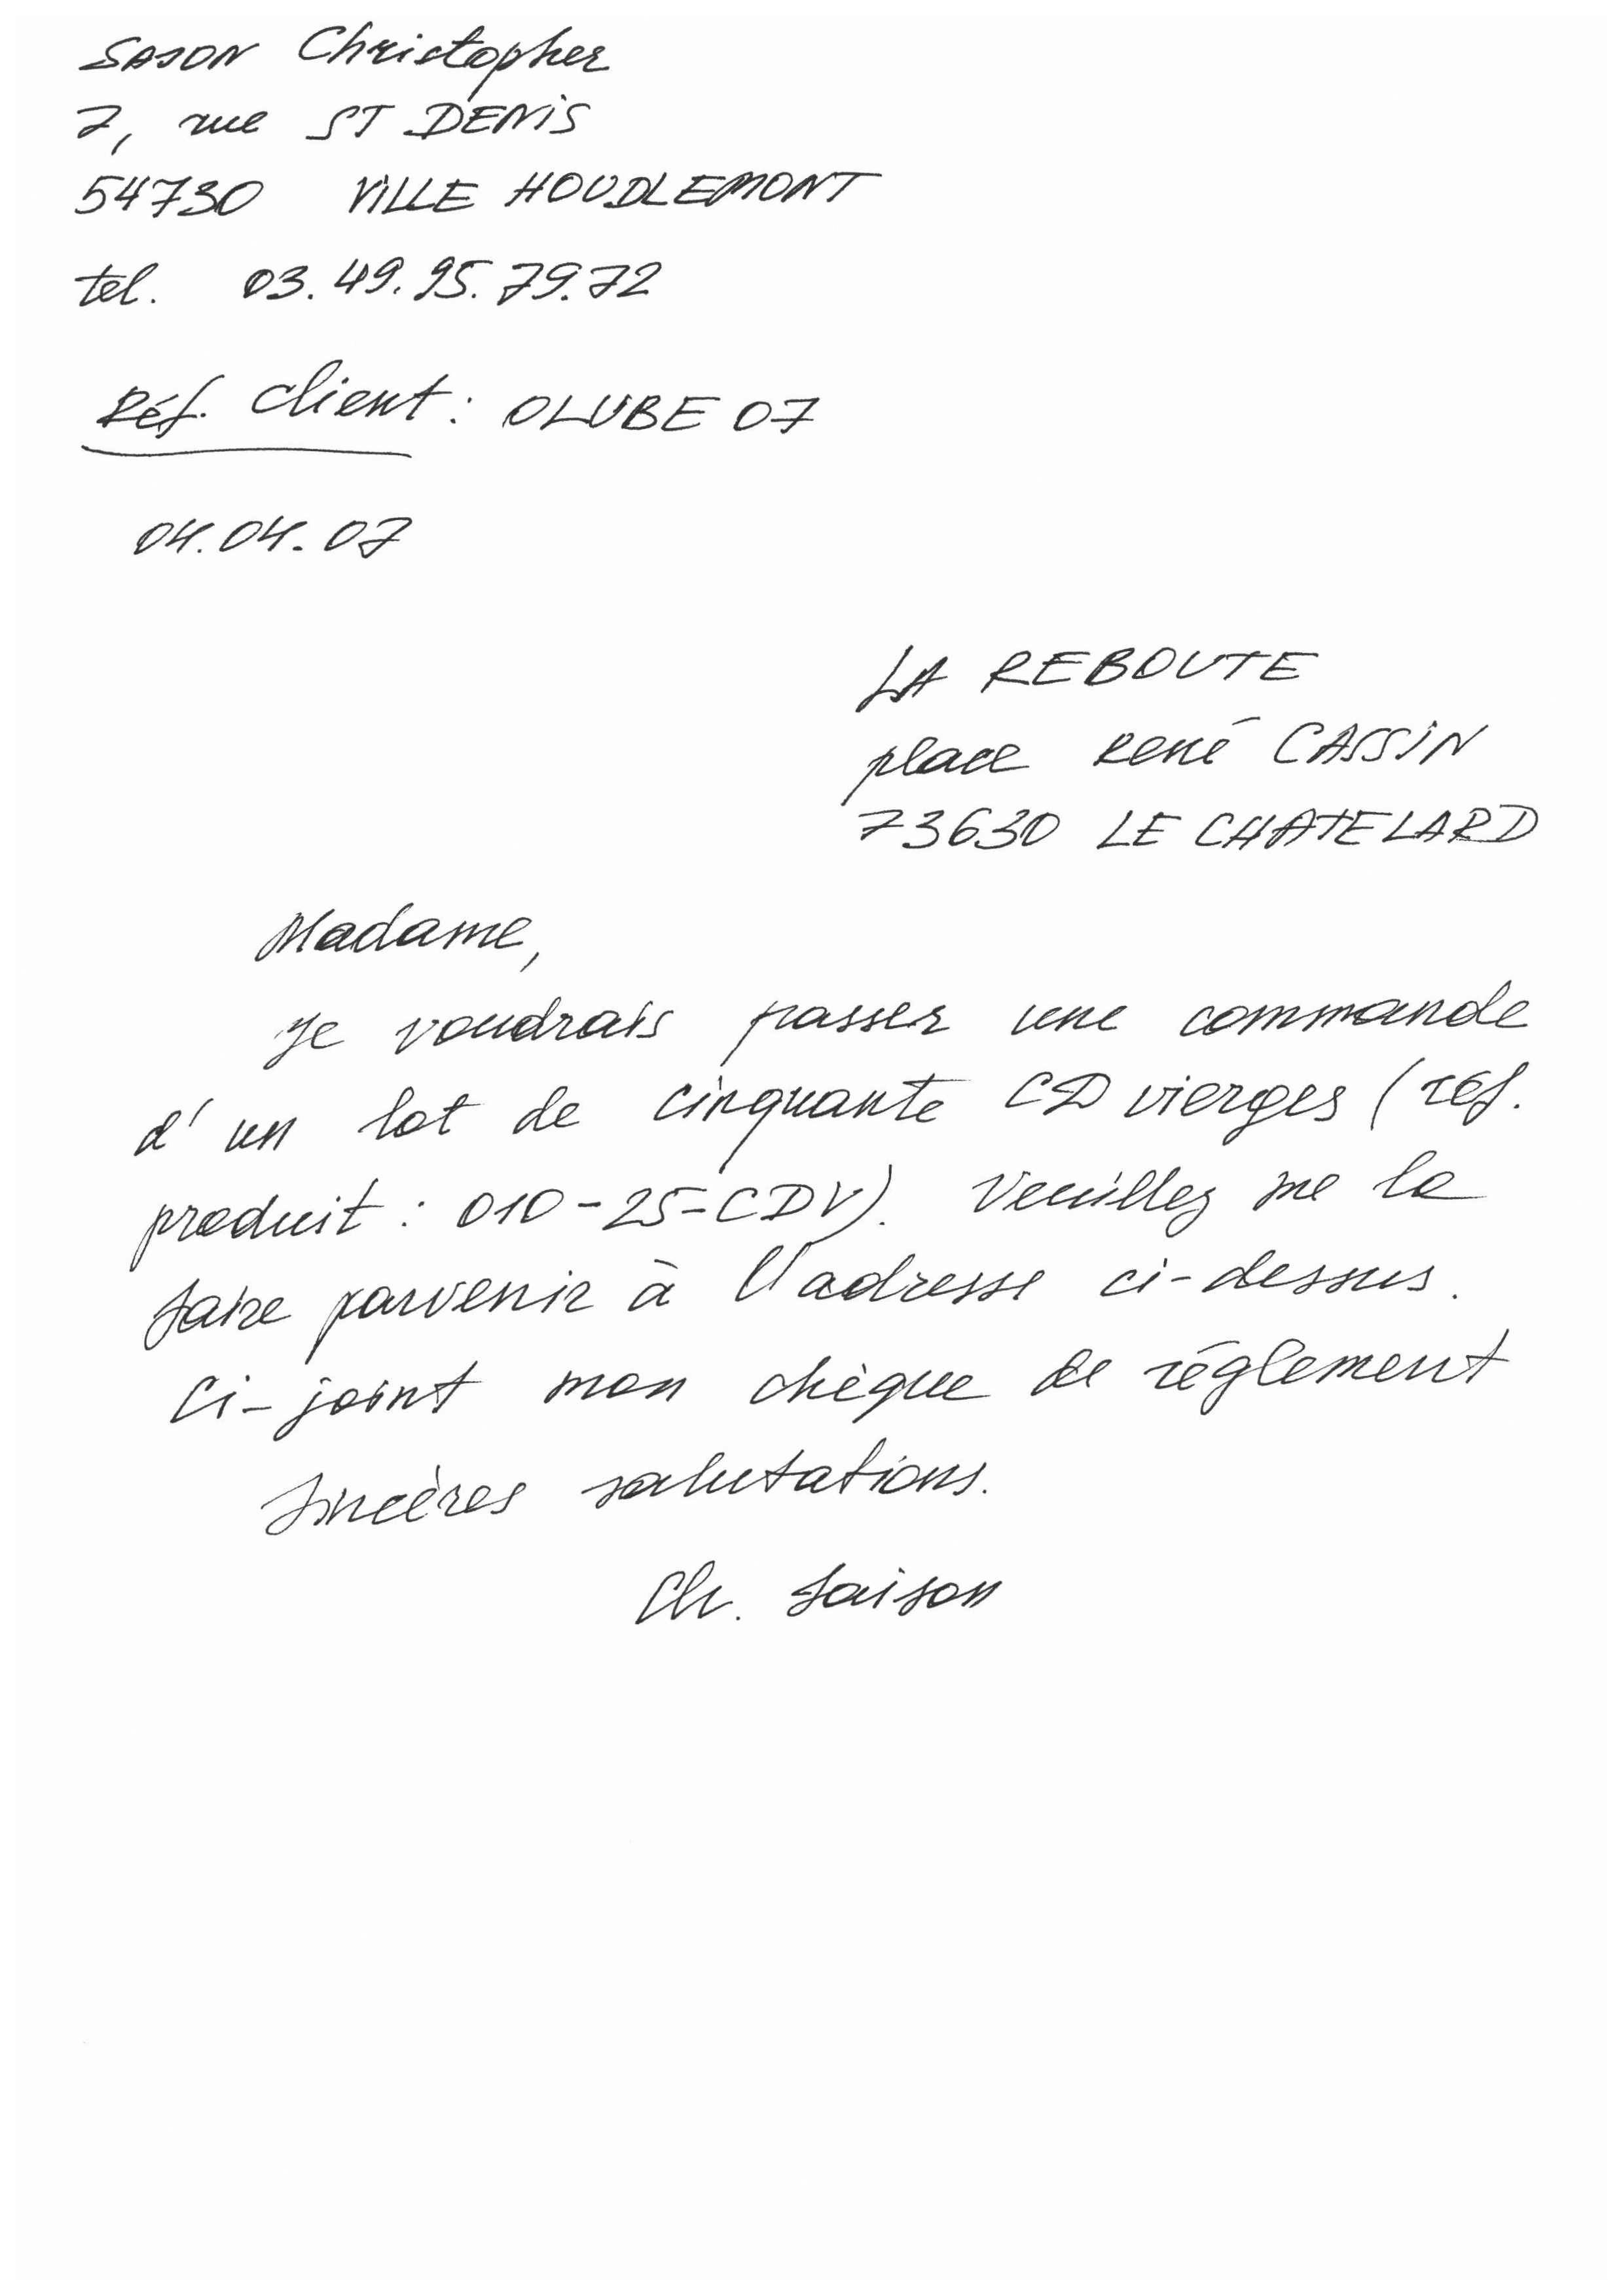 SASON Christopher
7, rue ST DENIS
54730 VILLE HOUDLEMONT
tel. 03.49.95.79.72
Réf. client : OLUBE 07
04.04.07
LA REBOUTE
place René CASSIN
73630 LE CHATELARD
Madame,
Je voudrais passer une commande
d'un lot de cinquante CD vierges (réf.
produit : 010-25-CDV). Veuillez me la
faire parvenir à l'adresse ci-dessus.
Ci-joint mon chèque de réglement
Sincères salutations.
Ch. Saison